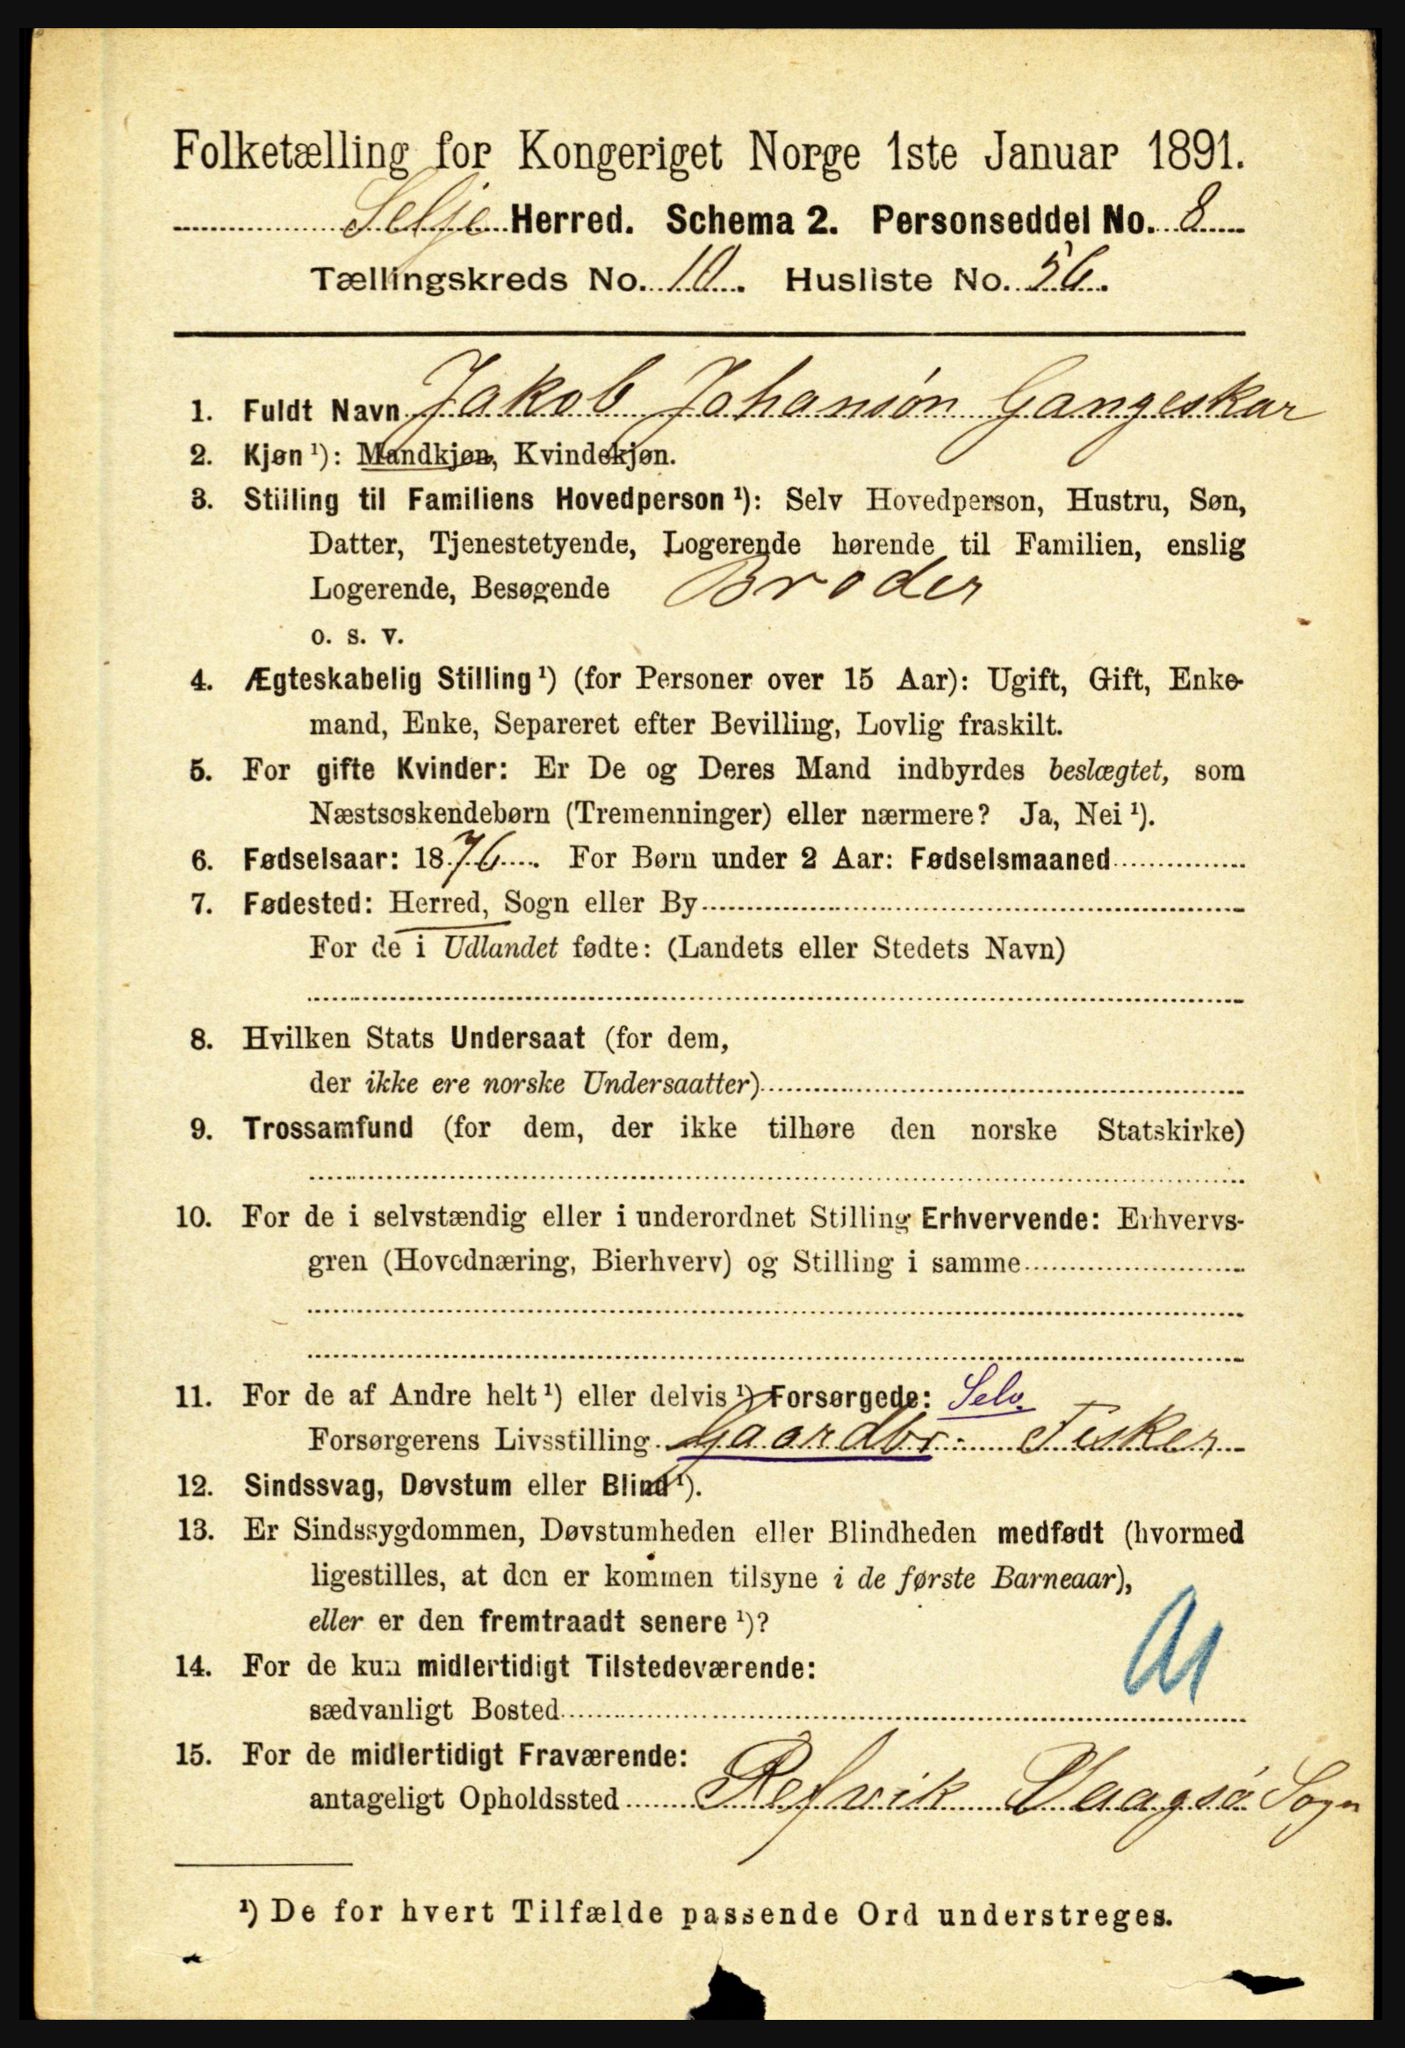 Folketælling for Kongeriget Norge 1ste Januar 1891.
Selje Herred. Schema 2. Personseddel No. 8
Tællingskreds No. 10. Husliste No. 56.
1. Fuldt Navn Jakob Johansøn Gangeskar
2. Kjøn ¹): Mandkjøn, Kvindekjøn.
3. Stilling til Familiens Hovedperson ¹): Selv Hovedperson, Hustru, Søn,
Datter, Tjenestetyende, Logerende hørende til Familien, enslig
Logerende, Besøgende Broder
o. s. v.
4. Ægteskabelig Stilling ¹) (for Personer over 15 Aar): Ugift, Gift, Enke-
mand, Enke, Separeret efter Bevilling, Lovlig fraskilt.
5. For gifte Kvinder: Er De og Deres Mand indbyrdes beslægtet, som
Næstsøskendebørn (Tremenninger) eller nærmere? Ja, Nei ¹).
6. Fødselsaar: 1876. For Børn under 2 Aar: Fødselsmaaned
7. Fødested: Herred, Sogn eller By
For de i Udlandet fødte: (Landets eller Stedets Navn)
8. Hvilken Stats Undersaat (for dem,
der ikke ere norske Undersaatter)
9. Trossamfund (for dem, der ikke tilhøre den norske Statskirke)
10. For de i selvstændig eller i underordnet Stilling Erhvervende: Erhvervs-
gren (Hovednæring, Bierhverv) og Stilling i samme
11. For de af Andre helt ¹) eller delvis ¹) Forsørgede: Selv.
Forsørgerens Livsstilling Gaardbr. Fisker
12. Sindssvag, Døvstum eller Blind ¹).
13. Er Sindssygdommen, Døvstumheden eller Blindheden medfødt (hvormed
ligestilles, at den er kommen tilsyne i de første Barneaar),
eller er den fremtraadt senere ¹)?
14. For de kun midlertidigt Tilstedeværende:
sædvanligt Bosted
15. For de midlertidigt Fraværende:
antageligt Opholdssted Refvik Vaagsø Sogn
¹) De for hvert Tilfælde passende Ord understreges.